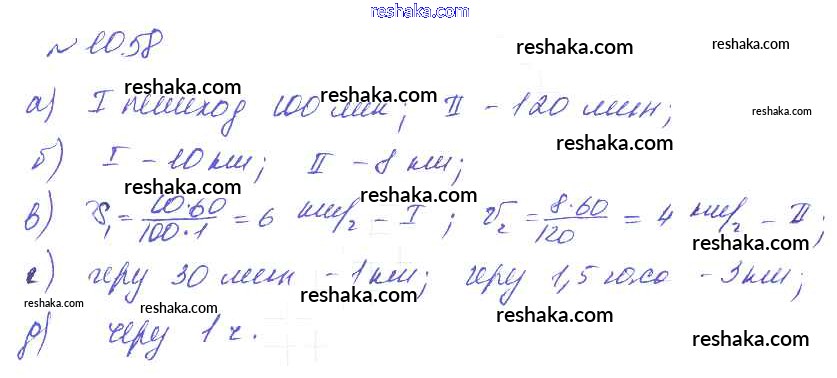 reshaka.com
№ 1058
reshaka.com reshaka.com
reshaka.com reshaka.com
а) I пешеход 100 мин; II - 120 мин; reshaka.com
reshaka.com
б) I - 10 км; II - 8 км;
reshaka.com reshaka.com
в) V₁ = 10·60/100·1 = 6 км/ч - I; V₂ = 8·60/120 = 4 км/ч - II;
reshaka.com reshaka.com
г) черу 30 мин - 1 км; черу 1,5 часа - 3 км;
reshaka.com reshaka.com reshaka.com
reshaka.com
д) черу 1 ч.
reshaka.com